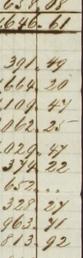 646.61
391.49
669.20
109.47
062.25
029.47
379.22
652...
328.27
963.71
813.92